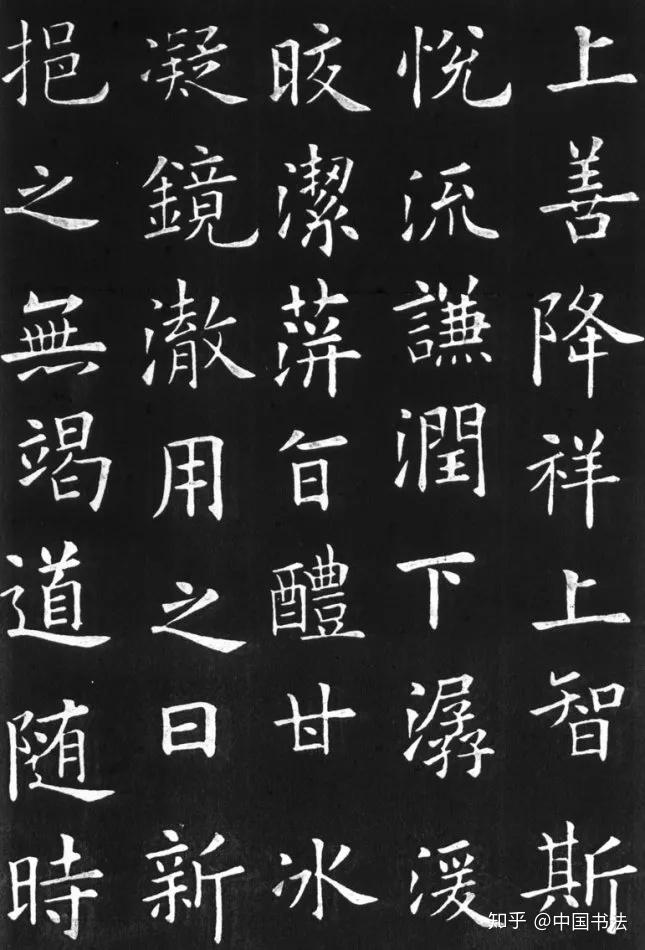 上善降祥上智斯
悅流謙潤下潺湲
晈潔蓱旨醴甘冰
凝鏡澈用之日新
挹之無竭道随時
知乎 @中国书法